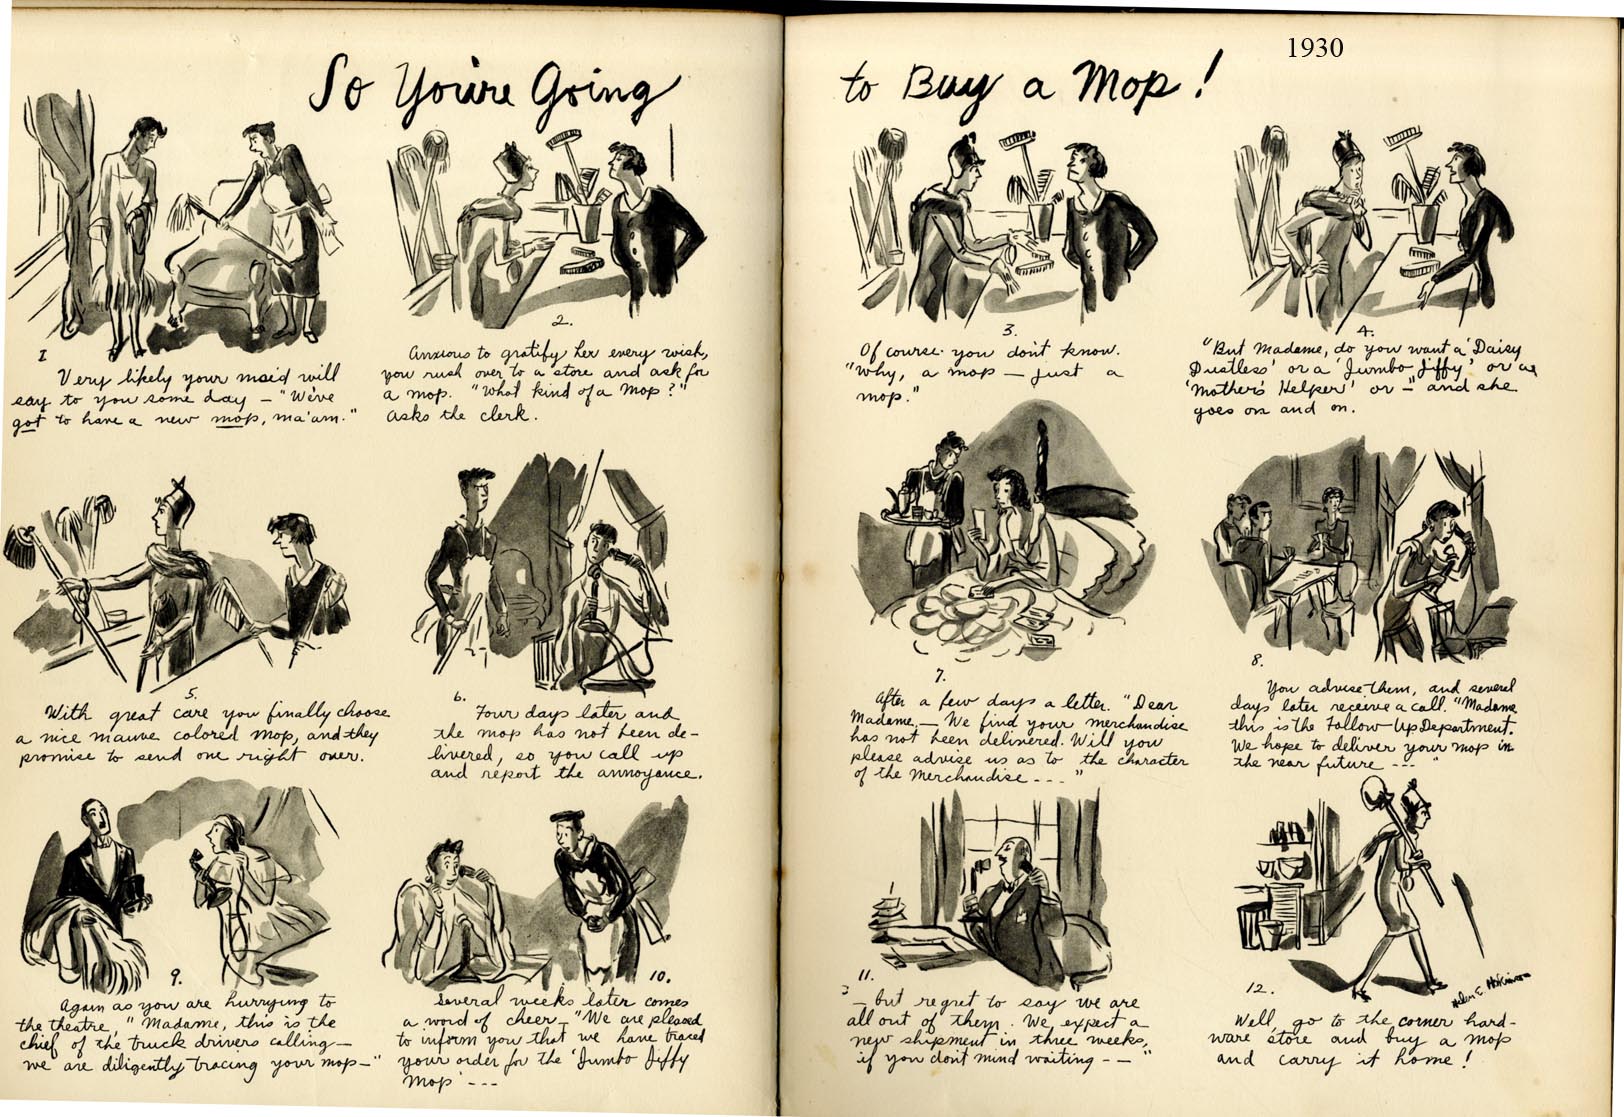 So You're Going to Buy a Mop!
1930
1
Very likely your maid will
say to you some day — "We've
got to have a new mop, ma'am."
2.
Anxious to gratify her every wish,
you rush over to a store and ask for
a mop. "What kind of a Mop?"
asks the clerk.
3.
Of course you don't know.
"Why, a mop — just a
mop."
4.
"But Madame, do you want a 'Daisy
Dustless' or a 'Jumbo Jiffy' or a
'Mother's Helper' or —" and she
goes on and on.
5.
With great care you finally choose
a nice mauve colored mop, and they
promise to send one right over.
6.
Four days later and
the mop has not been de-
livered, so you call up
and report the annoyance.
7.
After a few days a letter. "Dear
Madame, — We find your merchandise
has not been delivered. Will you
please advise us as to the character
of the Merchandise - - - "
8.
You advise them, and several
days later receive a call. "Madame
this is the Follow-Up Department.
We hope to deliver your mop in
the near future - - - "
9.
Again as you are hurrying to
the theatre, "Madame, this is the
chief of the truck drivers calling —
we are diligently tracing your mop —"
10.
Several weeks later comes
a word of cheer — "We are pleased
to inform you that we have traced
your order for the 'Jumbo Jiffy
Mop' - - -
11.
— but regret to say we are
all out of them. We expect a
new shipment in three weeks,
if you don't mind waiting - - "
12.
Helen E Hokinson
Well, go to the corner hard-
ware store and buy a mop
and carry it home!